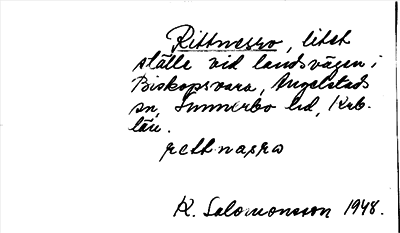 Rittnasro, litet
ställe vid landsvägen i
Biskopsvara, Angelstads
sn, Sunnerbo hd, Krb.
län.
rettnasro
K. Salomonsson 1948.